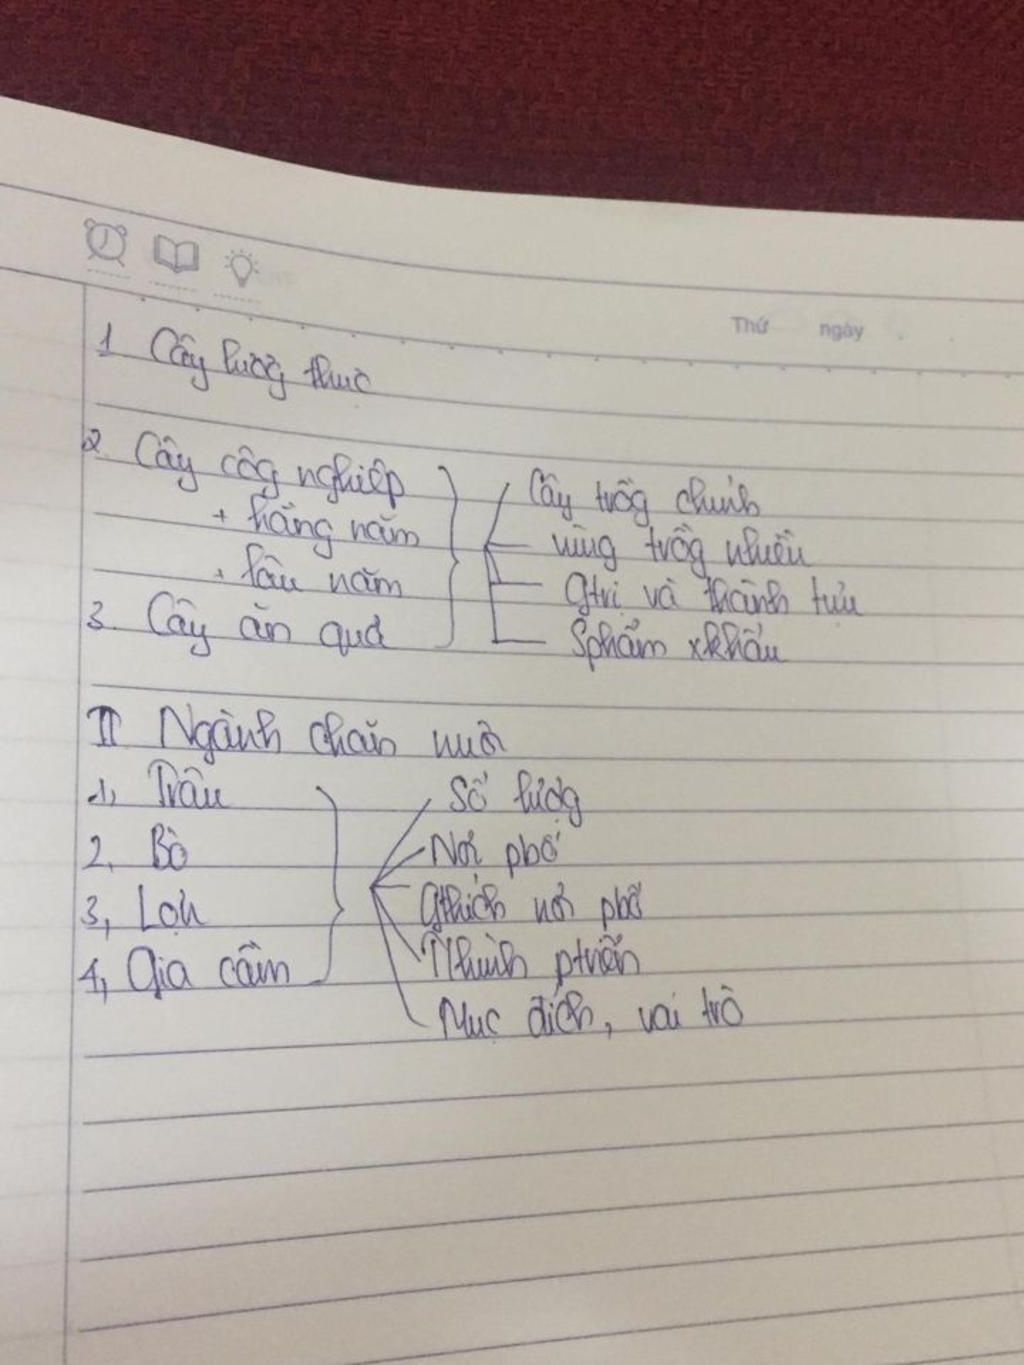 Thứ ngày
1 Cây lươg thực
2. Cây côg nghiệp
+ hằng năm
+ lâu năm
3. Cây ăn quả
Cây trồg chính
vùng trồg nhiều
Gtrị và thành tựu
Sphẩm xkhẩu
II Ngành chăn nuôi
1, Trâu
2, Bò
3, Lợn
4, Gia cầm
Số lượg
Nơi phố
Gthích nơi phố
Thình ptriển
Mục đích, vai trò